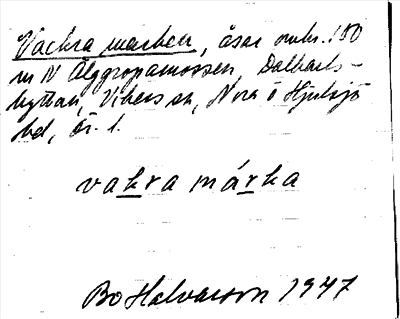 Vackra marken, åsar omkr. 100
m N Älggropamossen, Dalkarls-
hyttan, Vikers sn, Nora o Hjulsjö
bd, Ör. l.
vakra márka
Bo Halvarson 1947